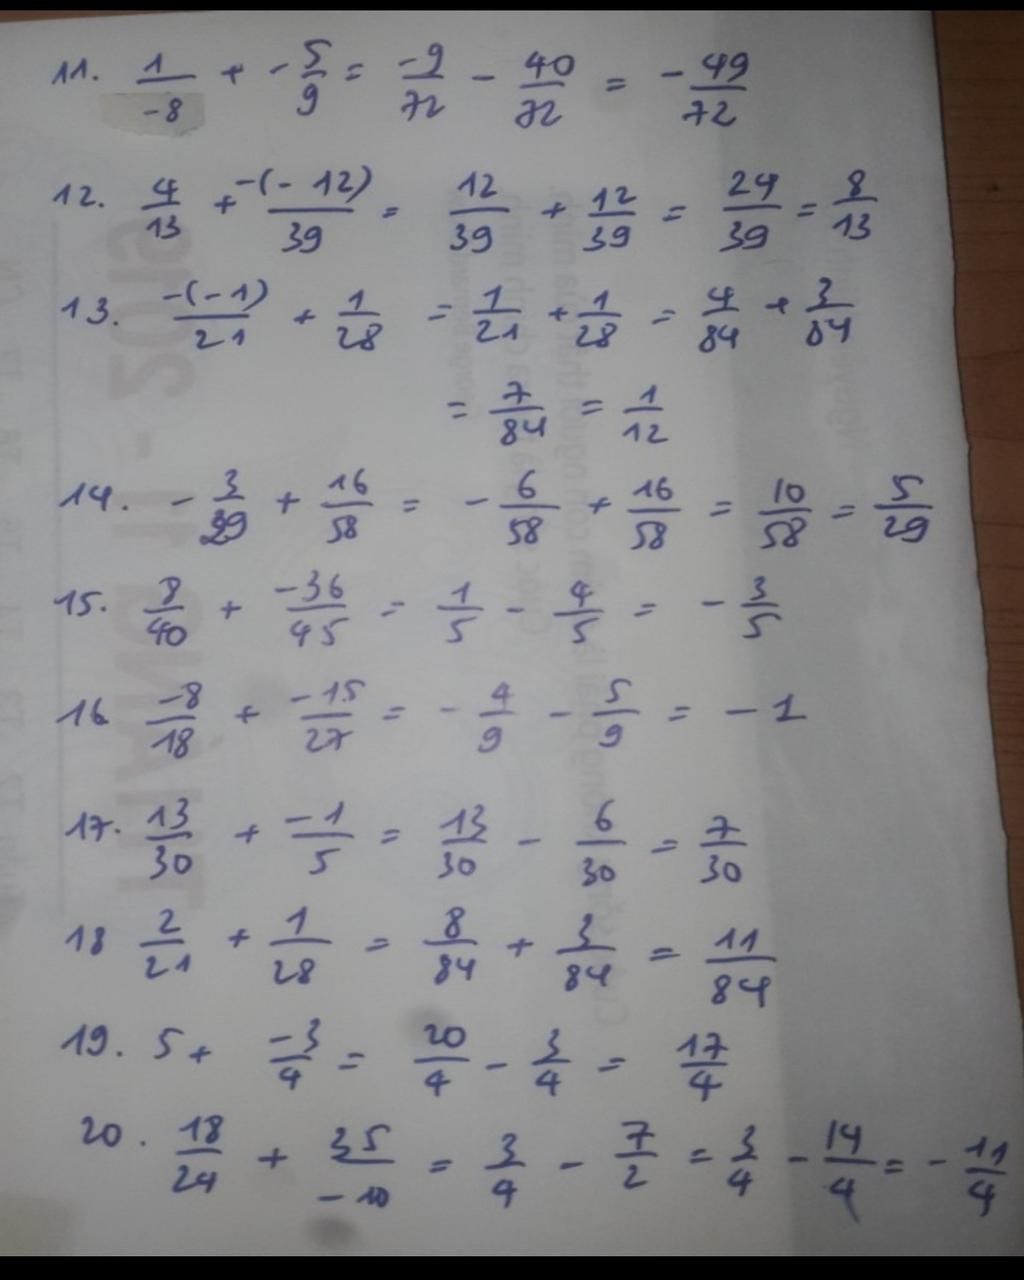 11. 1/-8 + -5/9 = -9/72 - 40/72 = -49/72
12. 4/13 + -(-12)/39 = 12/39 + 12/39 = 24/39 = 8/13
13. -(-1)/21 + 1/28 = 1/21 + 1/28 = 4/84 + 3/84
= 7/84 = 1/12
14. -3/29 + 16/58 = -6/58 + 16/58 = 10/58 = 5/29
15. 8/40 + -36/45 = 1/5 - 4/5 = -3/5
16 -8/18 + -15/27 = -4/9 - 5/9 = -1
17. 13/30 + -1/5 = 13/30 - 6/30 = 7/30
18 2/21 + 1/28 = 8/84 + 3/84 = 11/84
19. 5 + -3/4 = 20/4 - 3/4 = 17/4
20. 18/24 + 35/-10 = 3/4 - 7/2 = 3/4 - 14/4 = -11/4